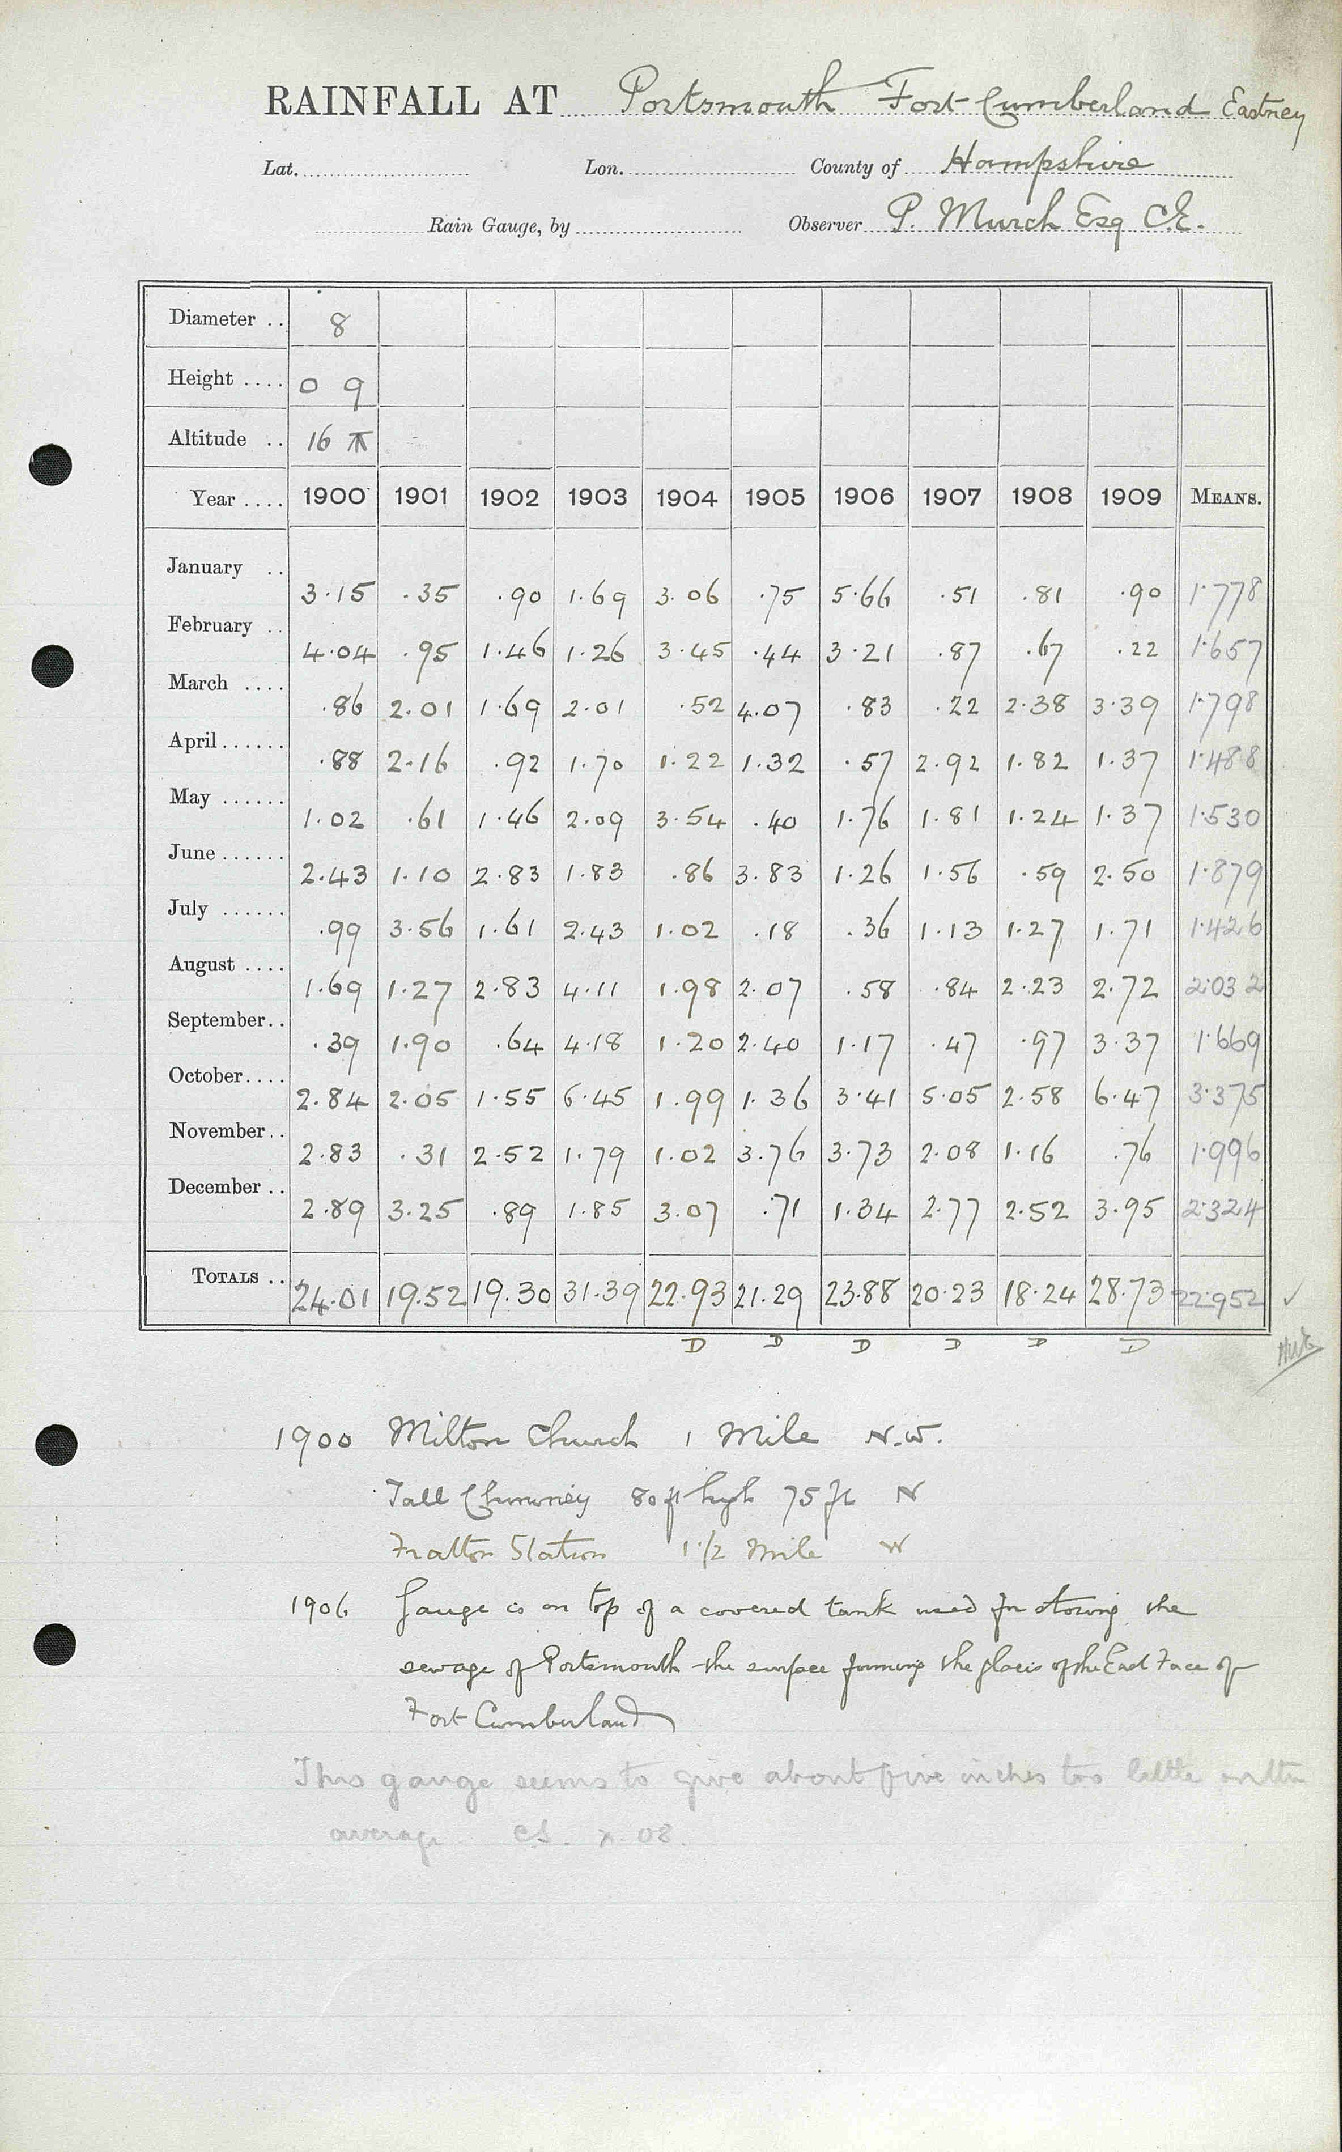 RAINFALL AT Portsmouth Fort Cumberland Eastney
Lat. Lon. County of Hampshire
Rain Gauge, by Observer P. Murch Esq C.E.
Diameter .. 8
Height .... 0 9
Altitude .. 16
Year .... 1900 1901 1902 1903 1904 1905 1906 1907 1908 1909 MEANS.
January .. 3.15 .35 .90 1.69 3.06 .75 5.66 .51 .81 .90 1.778
February .. 4.04 .95 1.46 1.26 3.45 .44 3.21 .87 .67 .22 1.657
March .... .86 2.01 1.69 2.01 .52 4.07 .83 .22 2.38 3.39 1.798
April ...... .88 2.16 .92 1.70 1.22 1.32 .57 2.92 1.82 1.37 1.488
May ...... 1.02 .61 1.46 2.09 3.54 .40 1.76 1.81 1.24 1.37 1.530
June ...... 2.43 1.10 2.83 1.83 .86 3.83 1.26 1.56 .59 2.50 1.879
July ...... .99 3.56 1.61 2.43 1.02 .18 .36 1.13 1.27 1.71 1.426
August .... 1.69 1.27 2.83 4.11 1.98 2.07 .58 .84 2.23 2.72 2.032
September.. .39 1.90 .64 4.18 1.20 2.40 1.17 .47 .97 3.37 1.669
October.... 2.84 2.05 1.55 6.45 1.99 1.36 3.41 5.05 2.58 6.47 3.375
November.. 2.83 .31 2.52 1.79 1.02 3.76 3.73 2.08 1.16 .76 1.996
December .. 2.89 3.25 .89 1.85 3.07 .71 1.34 2.77 2.52 3.95 2.324
TOTALS .. 24.01 19.52 19.30 31.39 22.93 21.29 23.88 20.23 18.24 28.73 22.952 ✓
D D D D D D
1900 Milton Church 1 Mile N.W.
Tall Chimney 80 ft high 75 ft N
Fratton Station 1 1/2 Mile W
1906 Gauge is on top of a covered tank used for storing the
sewage of Portsmouth the surface forming the glacis of the East Face of
Fort Cumberland
This gauge seems to give about five inches too little on the
average. x. 08.